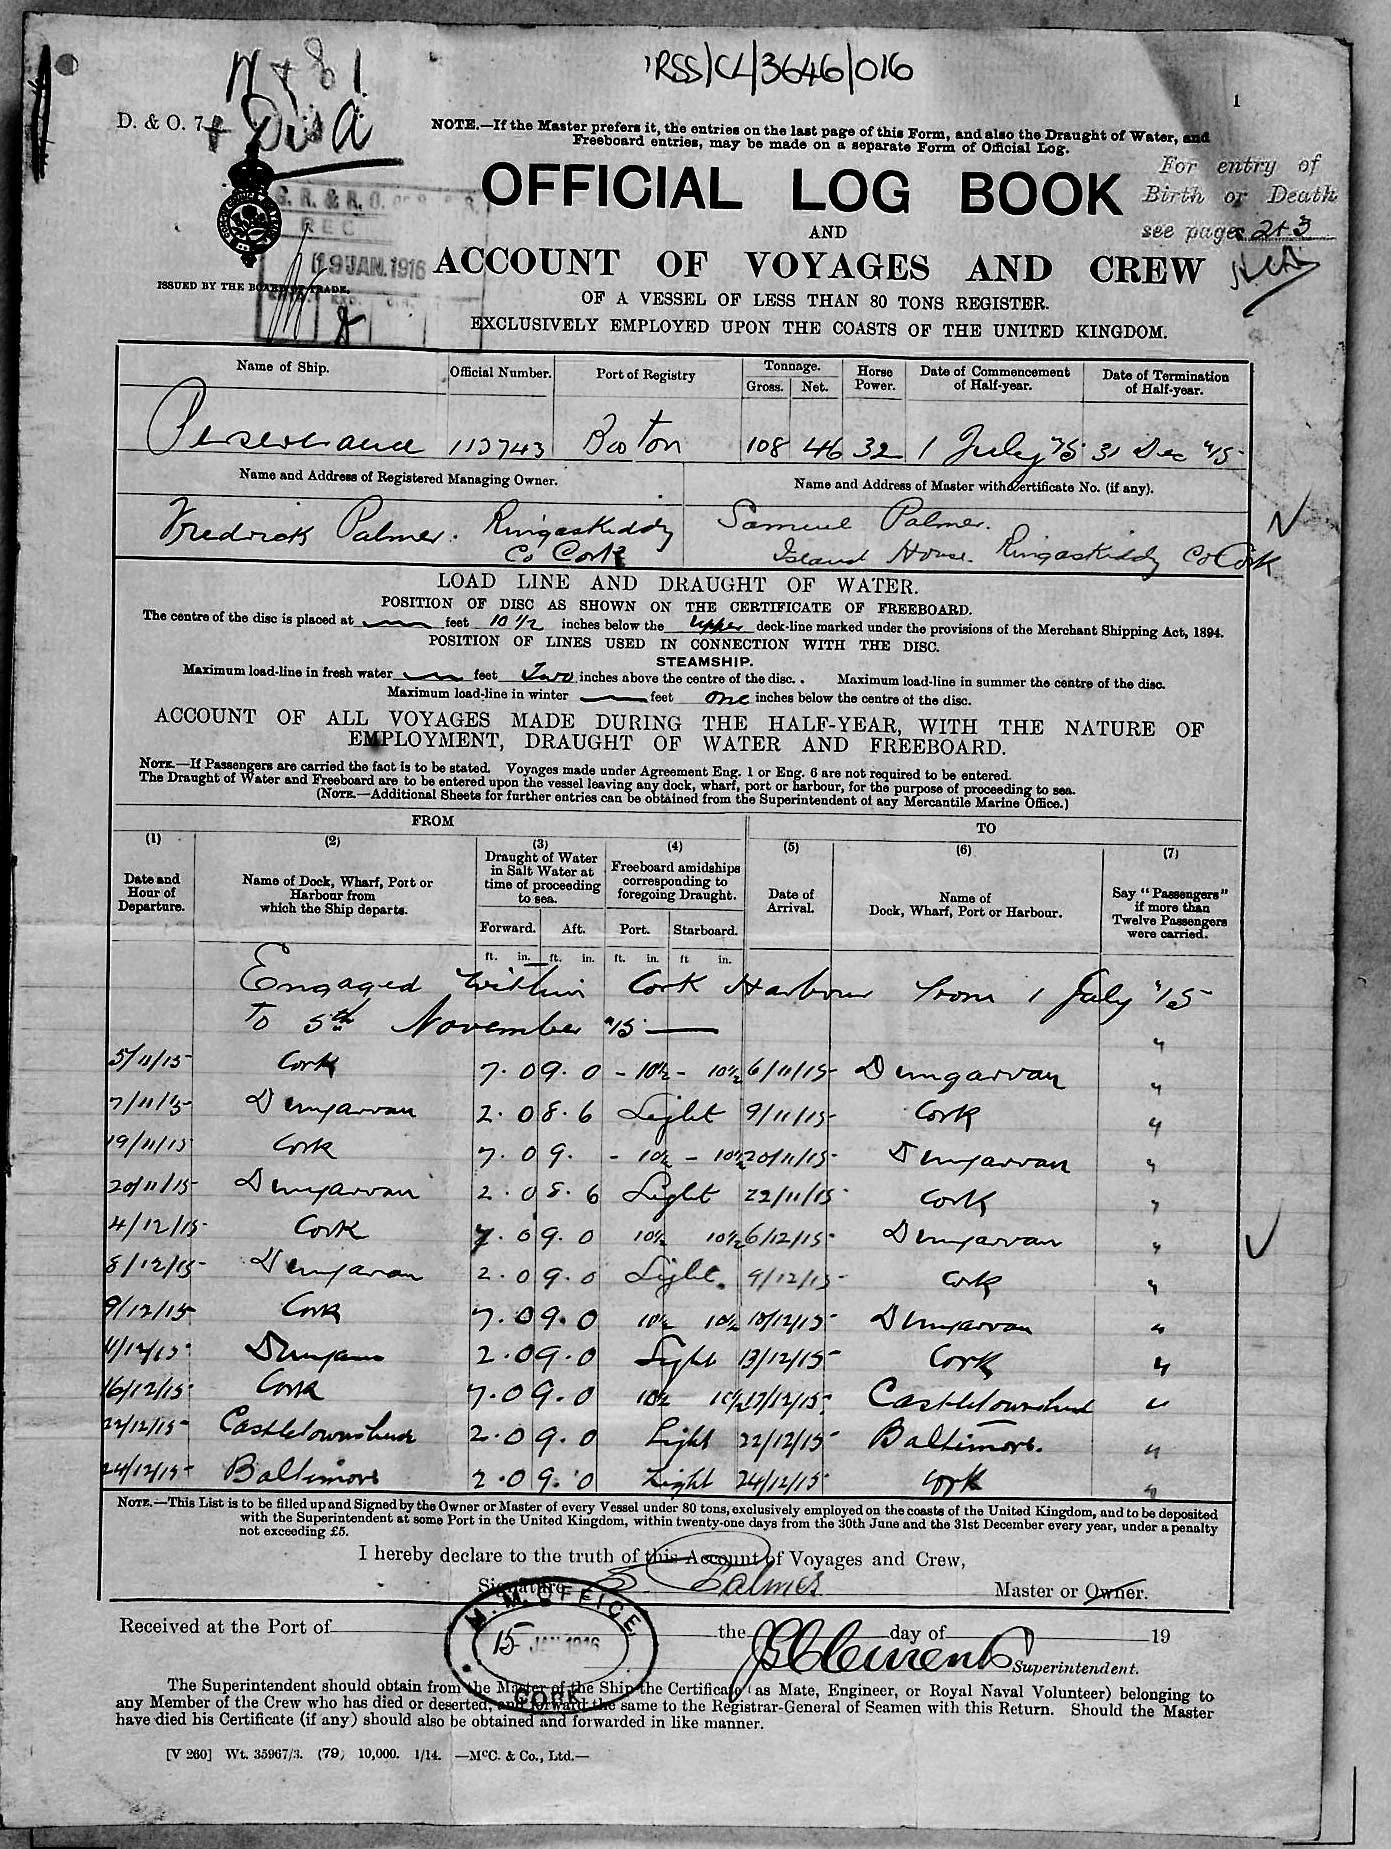 RSS/CL/3646/016
1
D. & O. 7
NOTE.—If the Master prefers it, the entries on the last page of this Form, and also the Draught of Water, and
Freeboard entries, may be made on a separate Form of Official Log.
OFFICIAL LOG BOOK
For entry of
Birth or Death
see pages 2+3
AND
REC
19 JAN. 1916
ACCOUNT OF VOYAGES AND CREW
ISSUED BY THE BOARD OF TRADE.
OF A VESSEL OF LESS THAN 80 TONS REGISTER.
EXCLUSIVELY EMPLOYED UPON THE COASTS OF THE UNITED KINGDOM.
Name of Ship. Official Number. Port of Registry Tonnage. Gross. Net. Horse Power. Date of Commencement of Half-year. Date of Termination of Half-year.
Perseverance 113743 Boston 108 46 32 1 July "15 31 Dec "15
Name and Address of Registered Managing Owner. Name and Address of Master with Certificate No. (if any).
Fredrick Palmer. Ringaskiddy Samuel Palmer.
Co Cork Island House. Ringaskiddy Co Cork
LOAD LINE AND DRAUGHT OF WATER.
POSITION OF DISC AS SHOWN ON THE CERTIFICATE OF FREEBOARD.
The centre of the disc is placed at feet 10 1/2 inches below the upper deck-line marked under the provisions of the Merchant Shipping Act, 1894.
POSITION OF LINES USED IN CONNECTION WITH THE DISC.
STEAMSHIP.
Maximum load-line in fresh water feet Two inches above the centre of the disc. . Maximum load-line in summer the centre of the disc.
Maximum load-line in winter feet One inches below the centre of the disc.
ACCOUNT OF ALL VOYAGES MADE DURING THE HALF-YEAR, WITH THE NATURE OF
EMPLOYMENT, DRAUGHT OF WATER AND FREEBOARD.
NOTE.—If Passengers are carried the fact is to be stated. Voyages made under Agreement Eng. 1 or Eng. 6 are not required to be entered.
The Draught of Water and Freeboard are to be entered upon the vessel leaving any dock, wharf, port or harbour, for the purpose of proceeding to sea.
(NOTE.—Additional Sheets for further entries can be obtained from the Superintendent of any Mercantile Marine Office.)
FROM TO
(1) (2) (3) (4) (5) (6) (7)
Date and Hour of Departure. Name of Dock, Wharf, Port or Harbour from which the Ship departs. Draught of Water in Salt Water at time of proceeding to sea. Freeboard amidships corresponding to foregoing Draught. Date of Arrival. Name of Dock, Wharf, Port or Harbour. Say "Passengers" if more than Twelve Passengers were carried.
Forward. Aft. Port. Starboard.
ft. in. ft. in. ft. in. ft in.
Engaged within Cork Harbour from 1 July "15
To 5th November "15 — "
5/11/15 Cork 7.0 9.0 - 10½ - 10½ 6/11/15 Dungarvan "
7/11/15 Dungarvan 2.0 8.6 Light 9/11/15 Cork "
19/11/15 Cork 7.0 9. - 10½ - 10½ 20/11/15 Dungarvan "
20/11/15 Dungarvan 2.0 8.6 Light 22/11/15 Cork "
4/12/15 Cork 7.0 9.0 10½ 10½ 6/12/15 Dungarvan "
8/12/15 Dungarvan 2.0 9.0 Light. 9/12/15 Cork "
9/12/15 Cork 7.0 9.0 10½ 10½ 10/12/15 Dungarvan "
11/12/15 Dungarvan 2.0 9.0 Light 13/12/15 Cork "
16/12/15 Cork 7.0 9.0 10½ 10½ 17/12/15 Castletownshend "
22/12/15 Castletownshend 2.0 9.0 Light 22/12/15 Baltimore. "
24/12/15 Baltimore 2.0 9.0 Light 24/12/15 Cork "
NOTE.—This List is to be filled up and Signed by the Owner or Master of every Vessel under 80 tons, exclusively employed on the coasts of the United Kingdom, and to be deposited
with the Superintendent at some Port in the United Kingdom, within twenty-one days from the 30th June and the 31st December every year, under a penalty
not exceeding £5.
I hereby declare to the truth of this Account of Voyages and Crew,
Signature S Palmer Master or Owner.
M. M. OFFICE
15 JAN 1916
CORK
Received at the Port of the day of 19
J Clements Superintendent.
The Superintendent should obtain from the Master of the Ship the Certificate (as Mate, Engineer, or Royal Naval Volunteer) belonging to
any Member of the Crew who has died or deserted, and forward the same to the Registrar-General of Seamen with this Return. Should the Master
have died his Certificate (if any) should also be obtained and forwarded in like manner.
[V 260] Wt. 35967/3. (79) 10,000. 1/14. —McC. & Co., Ltd.—